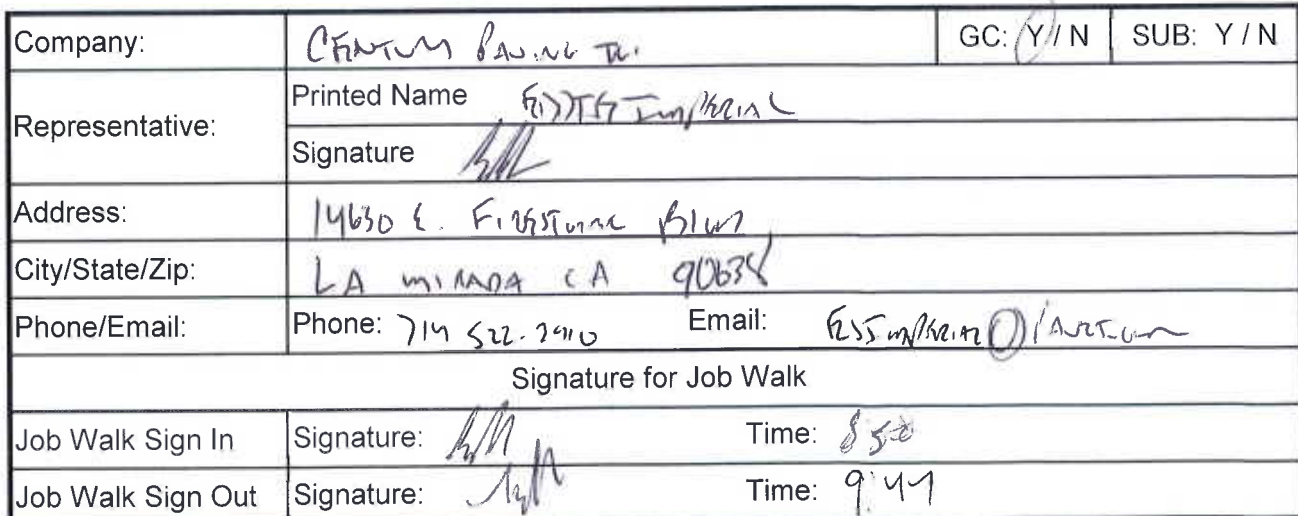 Company: CENTURY PAVING GC: Y / N SUB: Y / N
Representative: Printed Name EDDIE IMPERIAL
Signature
Address: 14630 E. FIRESTONE BLVD
City/State/Zip: LA MIRADA CA 90638
Phone/Email: Phone: 714 522. Email:
Signature for Job Walk
Job Walk Sign In Signature: Time: 850
Job Walk Sign Out Signature: Time: